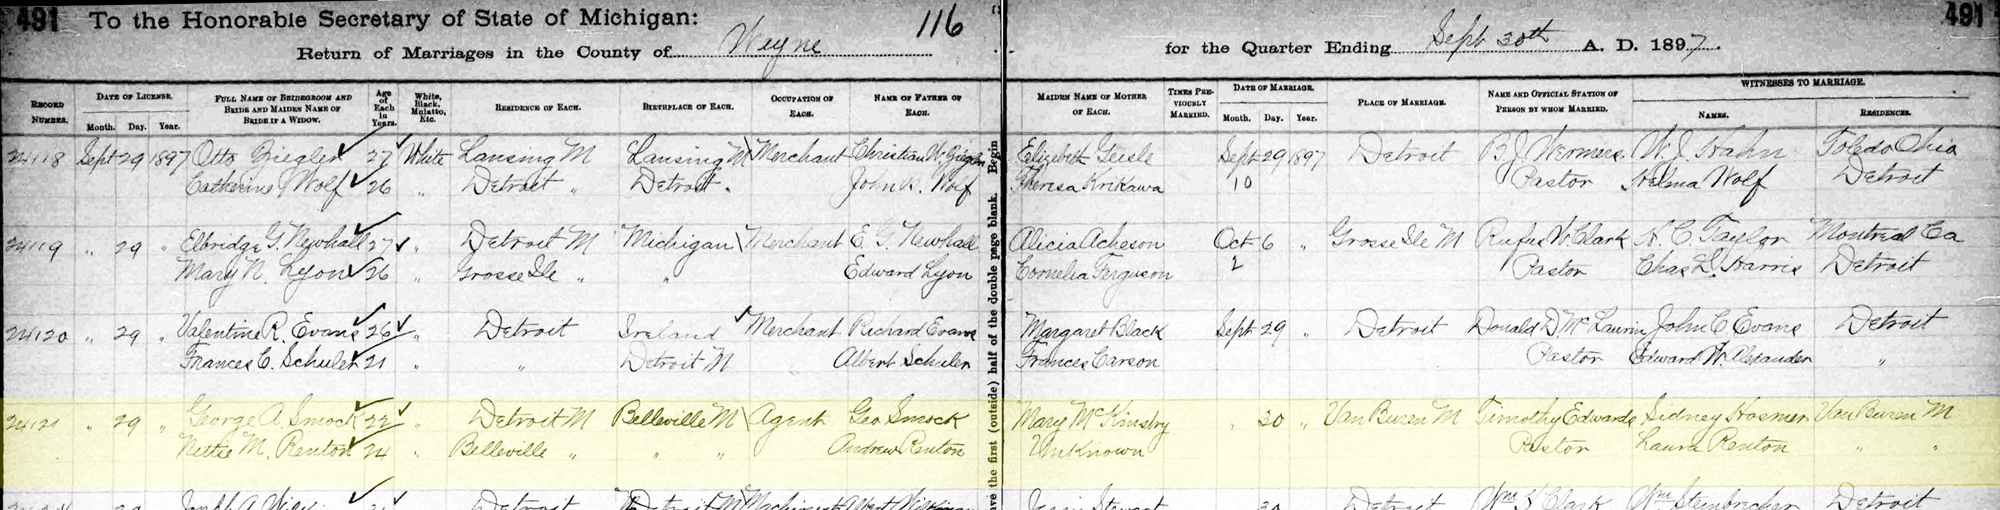 491 To the Honorable Secretary of State of Michigan: 116 491
Return of Marriages in the County of Wayne for the Quarter Ending Sept 30th A. D. 1897.
RECORD NUMBER. DATE OF LICENSE. Month. Day. Year. FULL NAME OF BRIDEGROOM AND BRIDE AND MAIDEN NAME OF BRIDE IF A WIDOW. Age of Each in Years. White, Black, Mulatto, Etc. RESIDENCE OF EACH. BIRTHPLACE OF EACH. OCCUPATION OF EACH. NAME OF FATHER OF EACH. MAIDEN NAME OF MOTHER OF EACH. TIMES PREVIOUSLY MARRIED. DATE OF MARRIAGE. Month. Day. Year. PLACE OF MARRIAGE. NAME AND OFFICIAL STATION OF PERSON BY WHOM MARRIED. WITNESSES TO MARRIAGE. NAMES. RESIDENCES.
24118 Sept 29 1897 Otto Ziegler 27 White Lansing M Lansing M Merchant Christian Elizabeth Geisle Sept 29 1897 Detroit B J Wermers W. J. Hahn Toledo Ohio
Catherine Wolf 26 " Detroit " Detroit " John Wolf Theresa Krikawa 10 Pastor Helma Wolf Detroit
24119 " 29 " Elbridge G. Newhall 27 " Detroit M Michigan Merchant E. G. Newhall Alicia Acheson Oct 6 " Grosse Ile M Rufus W. Clark H. C. Taylor Montreal Ca
Mary N. Lyon 26 Grosse Ile " " Edward Lyon Cornelia Ferguson 2 Pastor Chas L. Harris Detroit
24120 " 29 " Valentine R. Evans 26 " Detroit Ireland Merchant Richard Evans Margaret Black Sept 29 " Detroit Donald D. McLaurin John C Evans Detroit
Frances C. Schuler 21 " " Detroit M Albert Schuler Frances Carson Pastor Edward W. Alexander "
24121 " 29 " George A. Smock 22 " Detroit M Belleville M Agent Geo Smock Mary McKinstry " 30 " Van Buren M Timothy Edwards Sidney Hosmer Van Buren M
Nettie M. Renton 24 " Belleville " " " Andrew Renton Unknown Pastor Laura Renton " "
29 Detroit Detroit M Machinist Albert Stewart 30 Detroit Wm H Clark Wm Steinbrecher Detroit
ve the first (outside) half of the double page blank. Begin